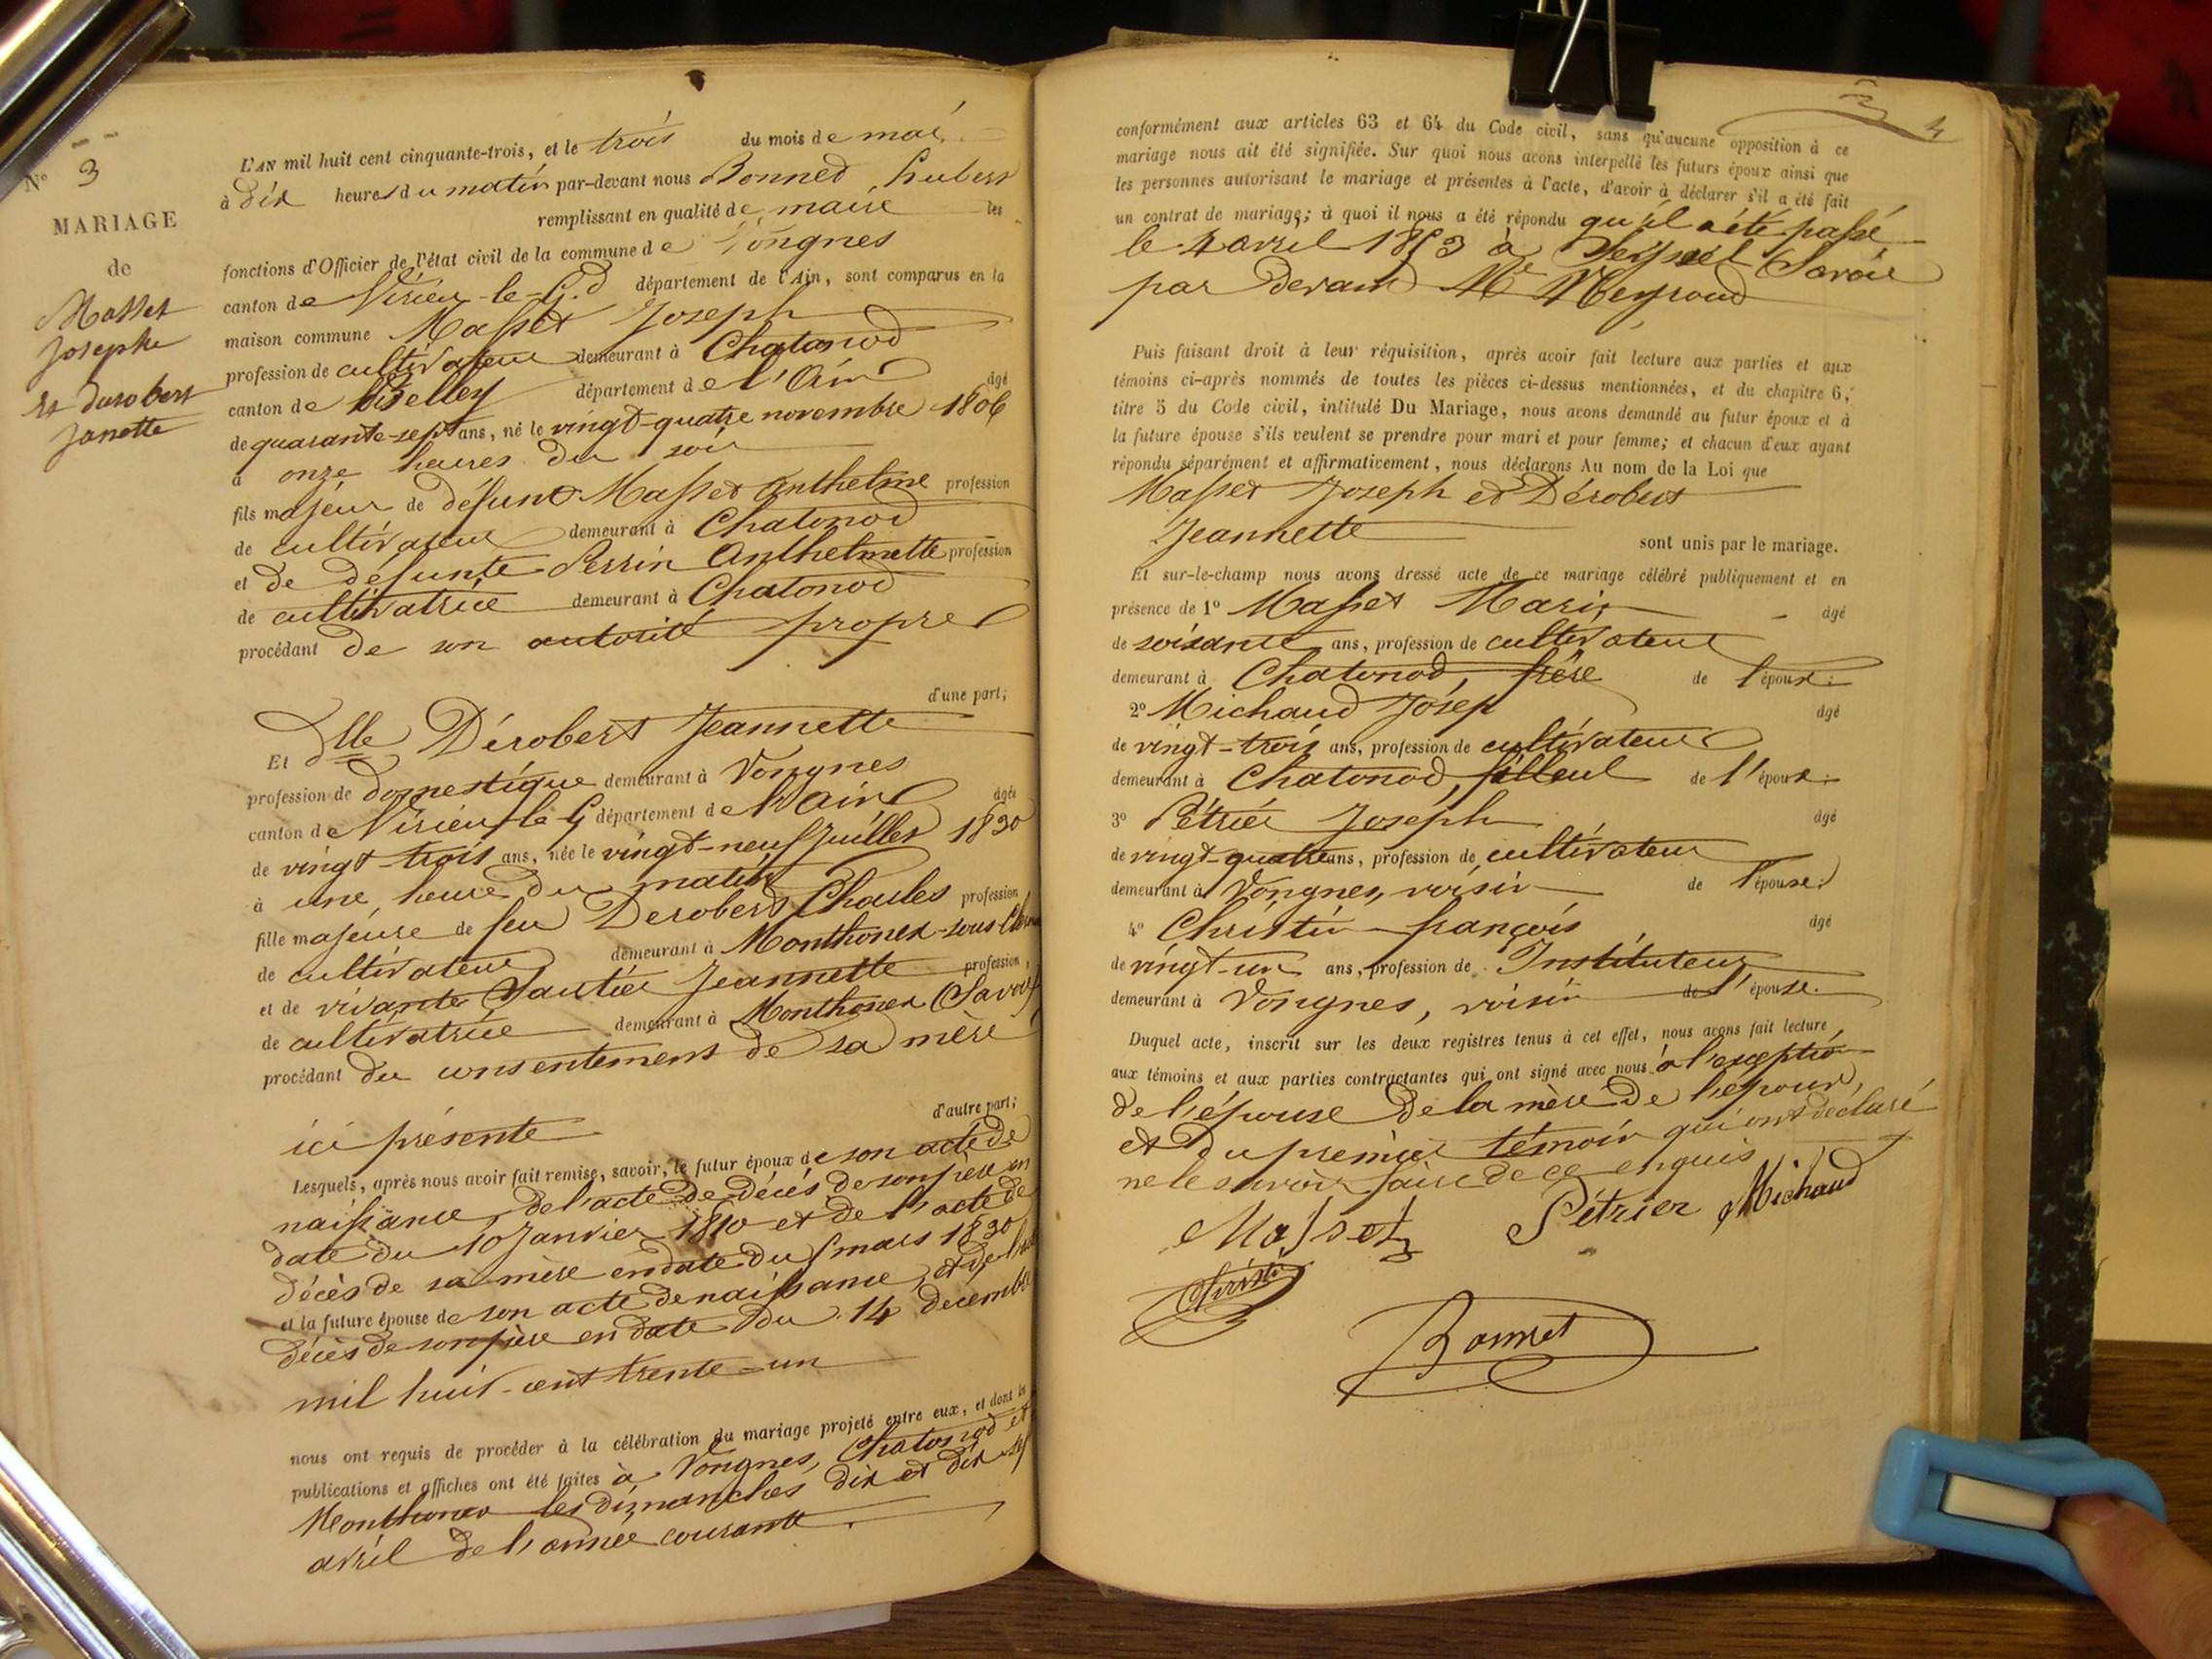 N° 3
MARIAGE
de
Masset
Josephe
Et Derobert
Janette
L'AN mil huit cent cinquante-trois, et le trois du mois de mai
à dix heures du matin par-devant nous Bonned, hubert
remplissant en qualité de maire les
fonctions d'Officier de l'état civil de la commune de Vongnes
canton de Virieu-le-Gd département de l'Ain, sont comparus en la
maison commune Masset Joseph
profession de cultivateur demeurant à Chatonod
canton de Belley département de l'Ain âgé
de quarante-sept ans, né le vingt-quatre novembre 1806
à onze heures du soir
fils majeur de défunt Masset Anthelme profession
de cultivateur demeurant à Chatonod
et de défunte Perrin Anthelmette profession
de cultivatrice demeurant à Chatonod
procédant de son autorité propre
d'une part;
Et Dlle Dérobert Jeannette
profession de domestique demeurant à Vongnes
canton de Virieu-le-G département de l'Ain âgée
de vingt trois ans, née le vingt-neuf Juillet 1830
à une heure du matin
fille majeure de feu Derobert Charles profession
de cultivateur demeurant à Monthonex-sous-
et de vivante Sautier Jeannette profession
de cultivatrice demeurant à Monthonex (Savoie)
procédant du consentement de sa mère
d'autre part;
ici présente
Lesquels, après nous avoir fait remise, savoir, le futur époux de son acte de
naissance, de l'acte de décès de son père en
date du 10 Janvier 1810 et de l'acte de
décès de sa mère en date du mars 1830
et la future épouse de son acte de naissance, et de
décès de son père en date du 14 decembre
mil huit-cent trente-un
nous ont requis de procéder à la célébration du mariage projeté entre eux, et dont les
publications et affiches ont été faites à Vongnes, Chatonod et
Monthonex les dimanches dix et dix sept
avril de l'année courante.
4
conformément aux articles 63 et 64 du Code civil, sans qu'aucune opposition à ce
mariage nous ait été signifiée. Sur quoi nous avons interpellé les futurs époux ainsi que
les personnes autorisant le mariage et présentes à l'acte, d'avoir à déclarer s'il a été fait
un contrat de mariage; à quoi il nous a été répondu qu'il a été passé
le 4 avril 1853 à Seyssel Savoie
par devant Me Meyroud
Puis faisant droit à leur réquisition, après avoir fait lecture aux parties et aux
témoins ci-après nommés de toutes les pièces ci-dessus mentionnées, et du chapitre 6,
titre 5 du Code civil, intitulé Du Mariage, nous avons demandé au futur époux et à
la future épouse s'ils veulent se prendre pour mari et pour femme; et chacun d'eux ayant
répondu séparément et affirmativement, nous déclarons Au nom de la Loi que
Masset Joseph et Dérobert
Jeannette
sont unis par le mariage.
Et sur-le-champ nous avons dressé acte de ce mariage célébré publiquement et en
présence de 1° Masset Marin âgé
de soixante ans, profession de cultivateur
demeurant à Chatonod, frère de l'époux:
2° Michaud Josep âgé
de vingt-trois ans, profession de cultivateur
demeurant à Chatonod, filleul de l'époux:
3° Pétrier Joseph âgé
de vingt-quatre ans, profession de cultivateur
demeurant à Vongnes, voisin de l'épouse:
4° Christin françois âgé
de vingt-un ans, profession de Instituteur
demeurant à Vongnes, voisin de l'épouse.
Duquel acte, inscrit sur les deux registres tenus à cet effet, nous avons fait lecture,
aux témoins et aux parties contractantes qui ont signé avec nous à l'exception
de l'épouse de la mère de l'epoux,
et du premier témoin qui ont déclaré
ne le savoir faire de ce enquis
Masset Pétrier Michaud
Christin
Bonnet